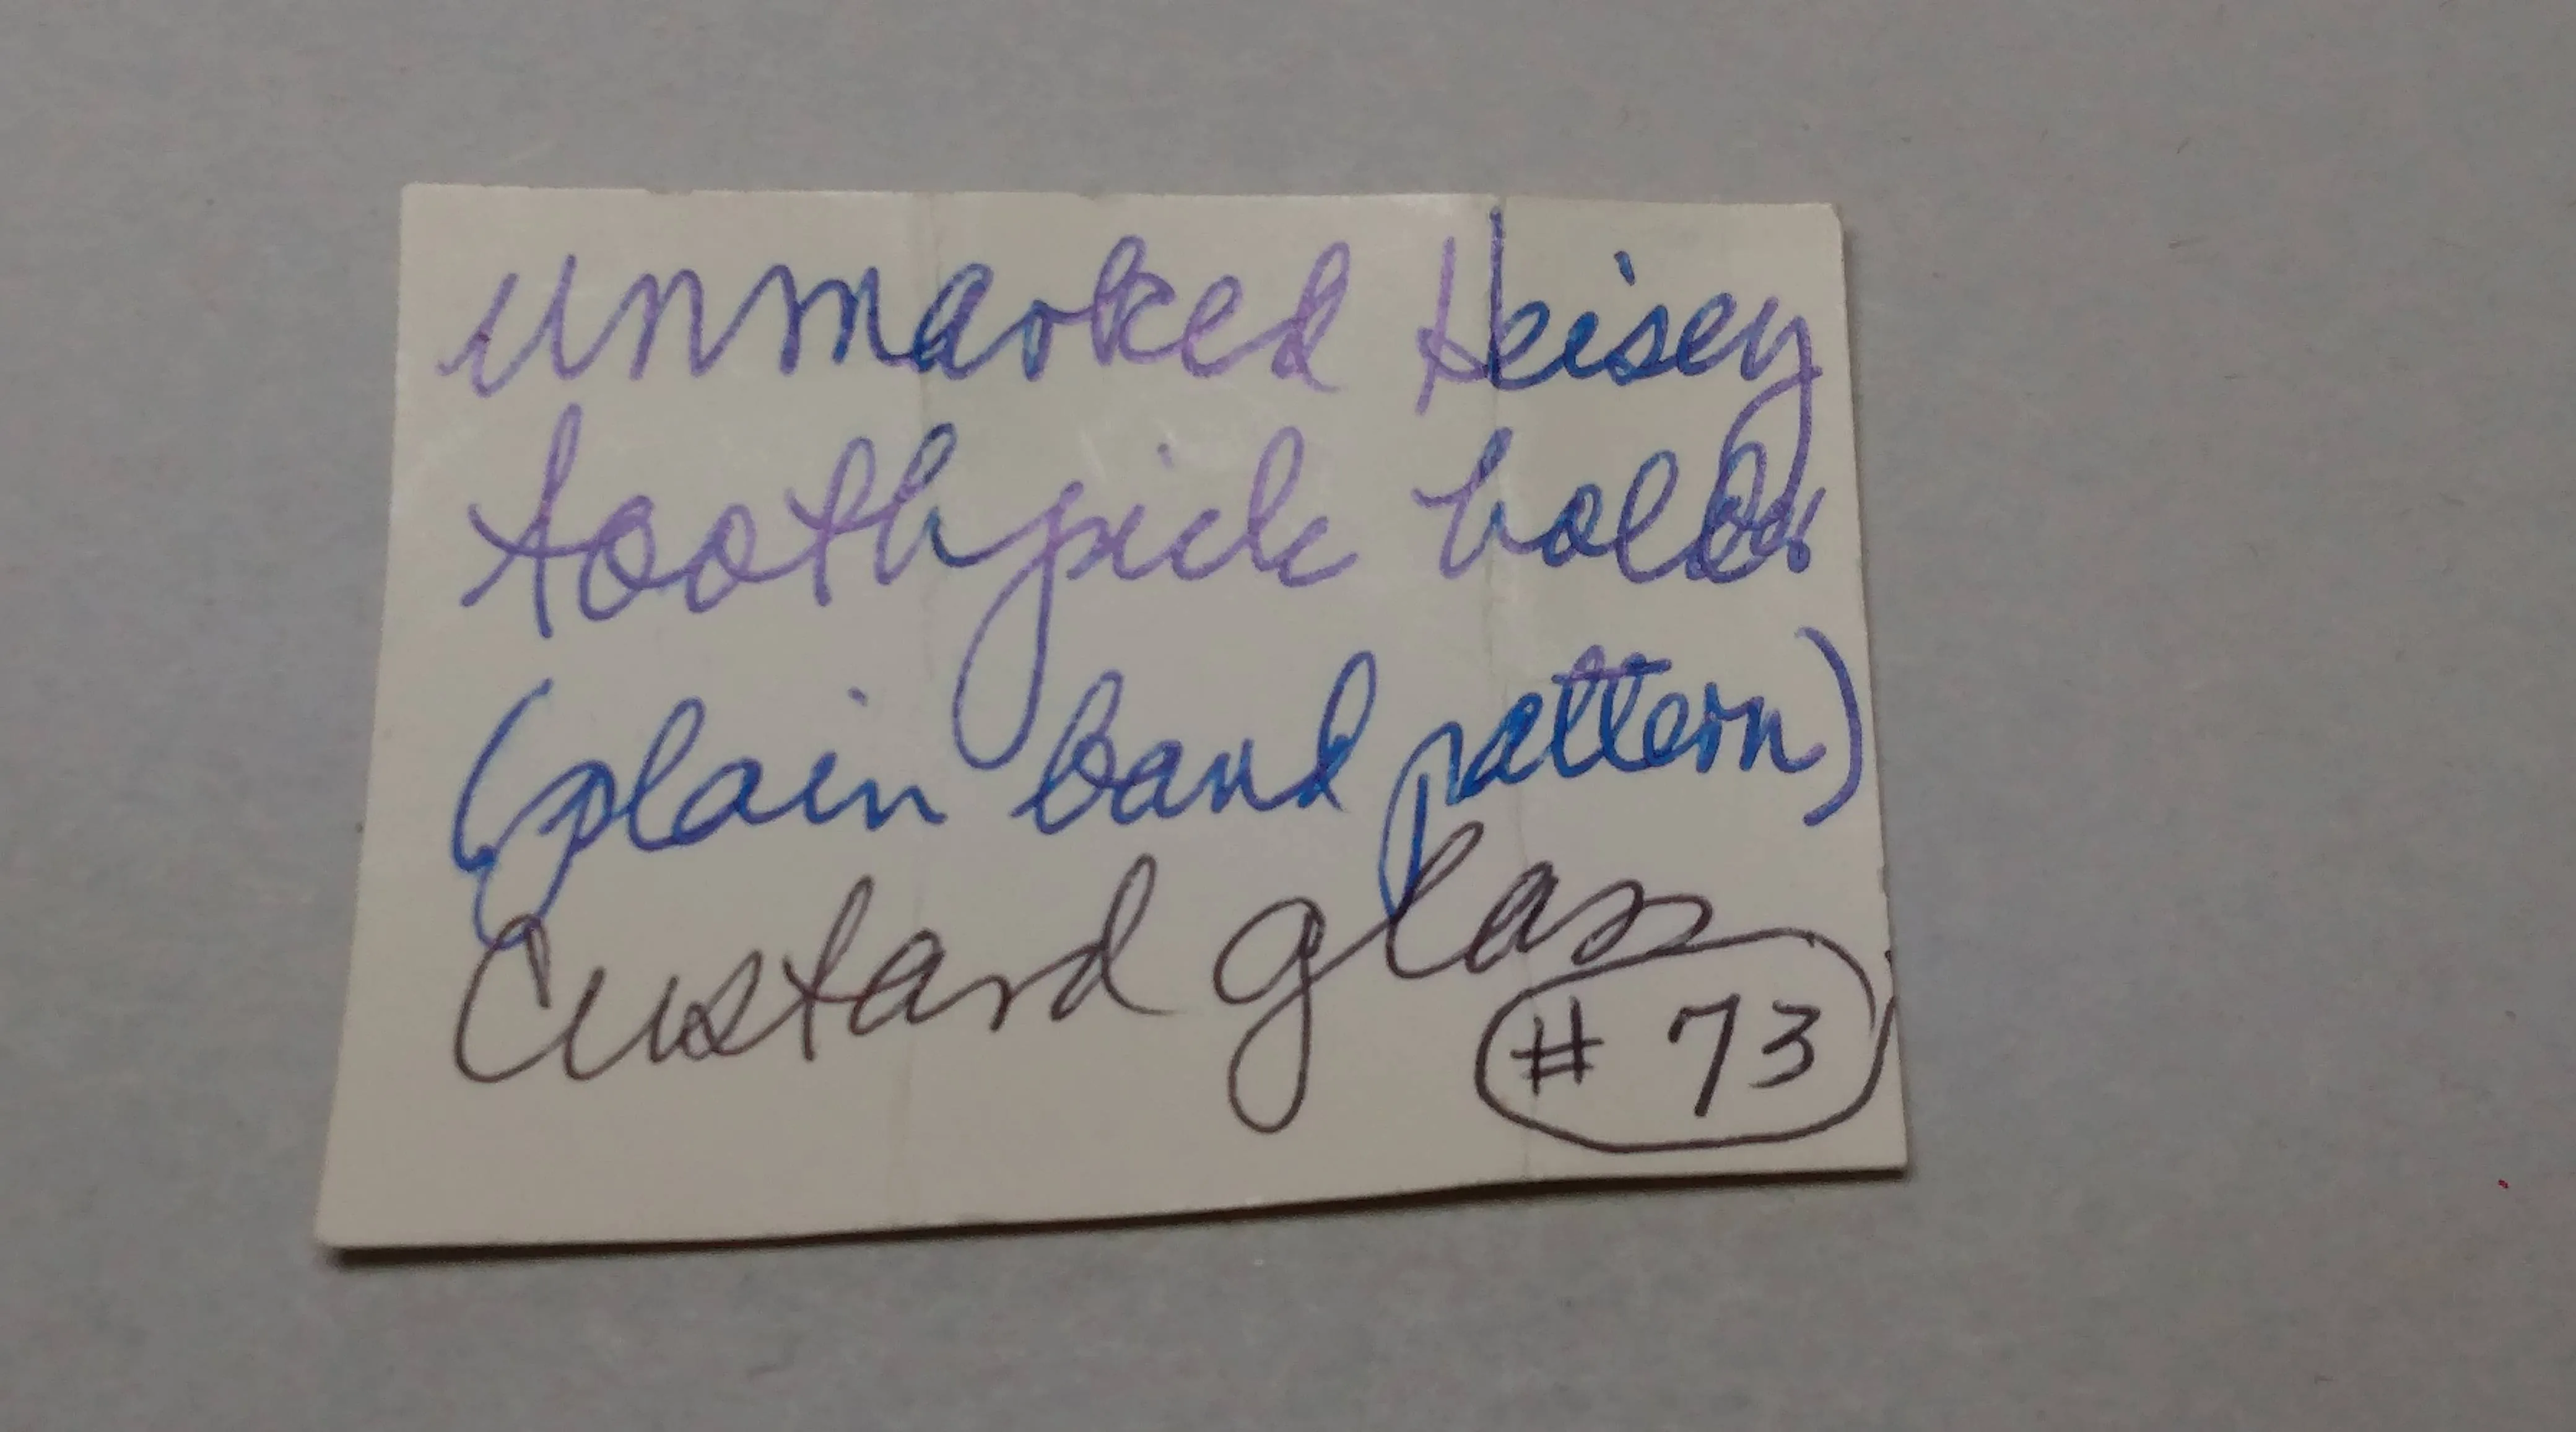 unmarked Heisey
toothpick holder
(plain band pattern)
Custard glass
# 73